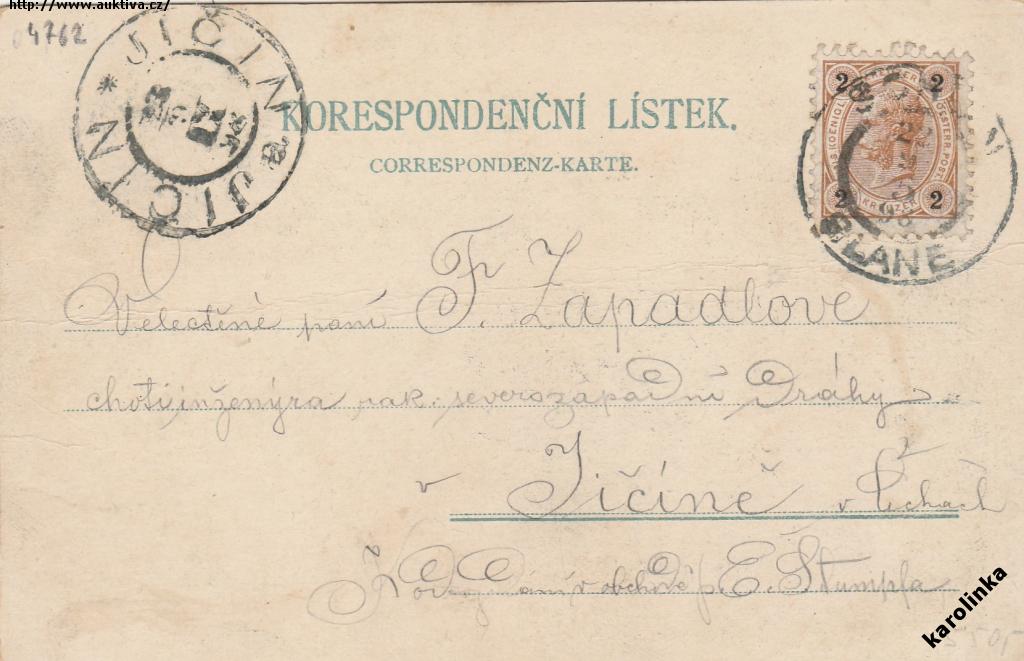 http://www.auktiva.cz/
4762
JIČÍN
JIČÍN
KORESPONDENČNÍ LÍSTEK.
CORRESPONDENZ-KARTE.
2 2
2 KREUZER 2
BLANÉ
Velectěné paní F. Zapadlové
choti inženýra rak. severozápadní dráhy
v Jičíně v Čechách
K odevzdání v obchodě p. E. Štumpfa
karolinka